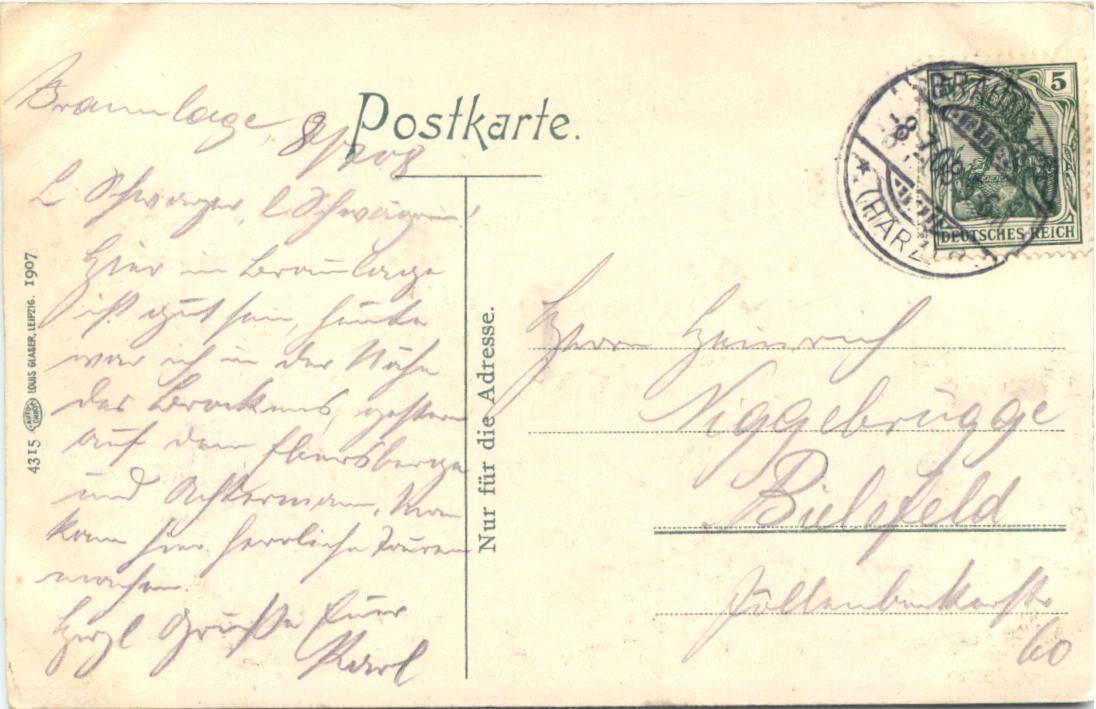 Postkarte.
Braunlage, 8/7 08
L. Schwager, l. Schwägerin!
Hier in Braunlage
ist gut sein, heute
war ich in der Nähe
des Brockens, gestern
auf dem Ebersberge
und Achtermann. Man
kann hier herrliche Touren
machen.
Herzl Grüße Euer
Karl
4315 LOUIS GLASER, LEIPZIG. 1907
Nur für die Adresse.
BRAUNLAGE
8.7.08
* (HARZ)
5
DEUTSCHES REICH
Herrn Heinrich
Niggebrügge
Bielefeld
Jöllenbeckerstr
60